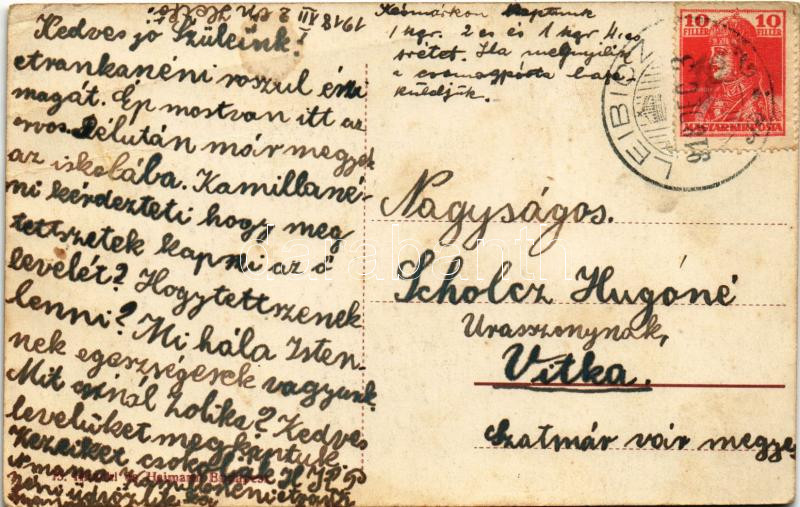 1918 XII
2 én
Kedves jó Szüleink!
etrankanéni roszul érzi
magát. Ép mostvan itt az
orvos. Délután már megyek
az iskolába. Kamillané-
ni kérdezteti hogy meg
tettszetek kapni az ő
levelét? Hogytettszenek
lenni? Mi hála Isten-
nek egerzségesek vagyunk.
Mit csinál Zolika? Kedves
levelüket megkaptuk
Kezeiket csokolják
Késmárkon kaptunk
1 kgr. 2 es és 1 kgr 4. es
srétet. Ha megnyílik
a csomagpósta
küldjük.
LEIBIC
918 DEC 3
10 10
FILLÉR FILLÉR
MAGYAR KIR. POSTA
Nagyságos.
Scholcz Hugóné
Urasszonynak,
Vitka.
Szatmár vár megye
darabanth
Heimann Budapest